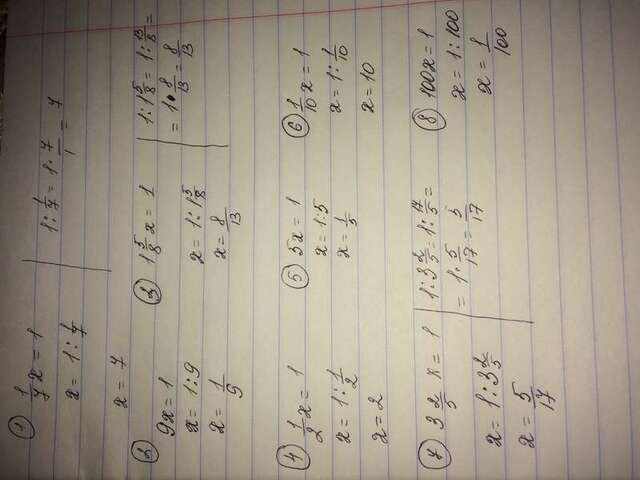 ① 1/7 x = 1
x = 1 : 1/7
x = 7
1 : 1/7 = 1 · 7/1 = 7
② 9x = 1
x = 1 : 9
x = 1/9
③ 1 5/8 x = 1
x = 1 : 1 5/8
x = 8/13
1 : 1 5/8 = 1 : 13/8 =
= 1 · 8/13 = 8/13
④ 1/2 x = 1
x = 1 : 1/2
x = 2
⑤ 5x = 1
x = 1 : 5
x = 1/5
⑥ 1/10 x = 1
x = 1 : 1/10
x = 10
⑦ 3 2/5 x = 1
x = 1 : 3 2/5
x = 5/17
1 : 3 2/5 = 1 : 17/5 =
= 1 · 5/17 = 5/17
⑧ 100x = 1
x = 1 : 100
x = 1/100